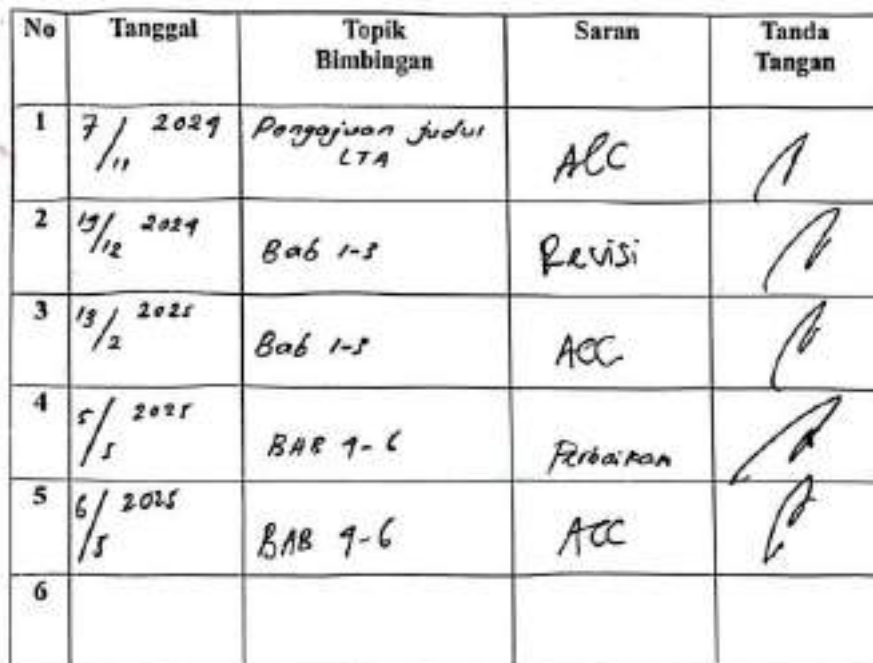 No Tanggal Topik Bimbingan Saran Tanda Tangan
1 7/11 2024 Pengajuan judul LTA ACC
2 19/12 2024 Bab 1-3 Revisi
3 13/2 2025 Bab 1-3 ACC
4 5/5 2025 BAB 4-6 Perbaikan
5 6/5 2025 BAB 4-6 ACC
6